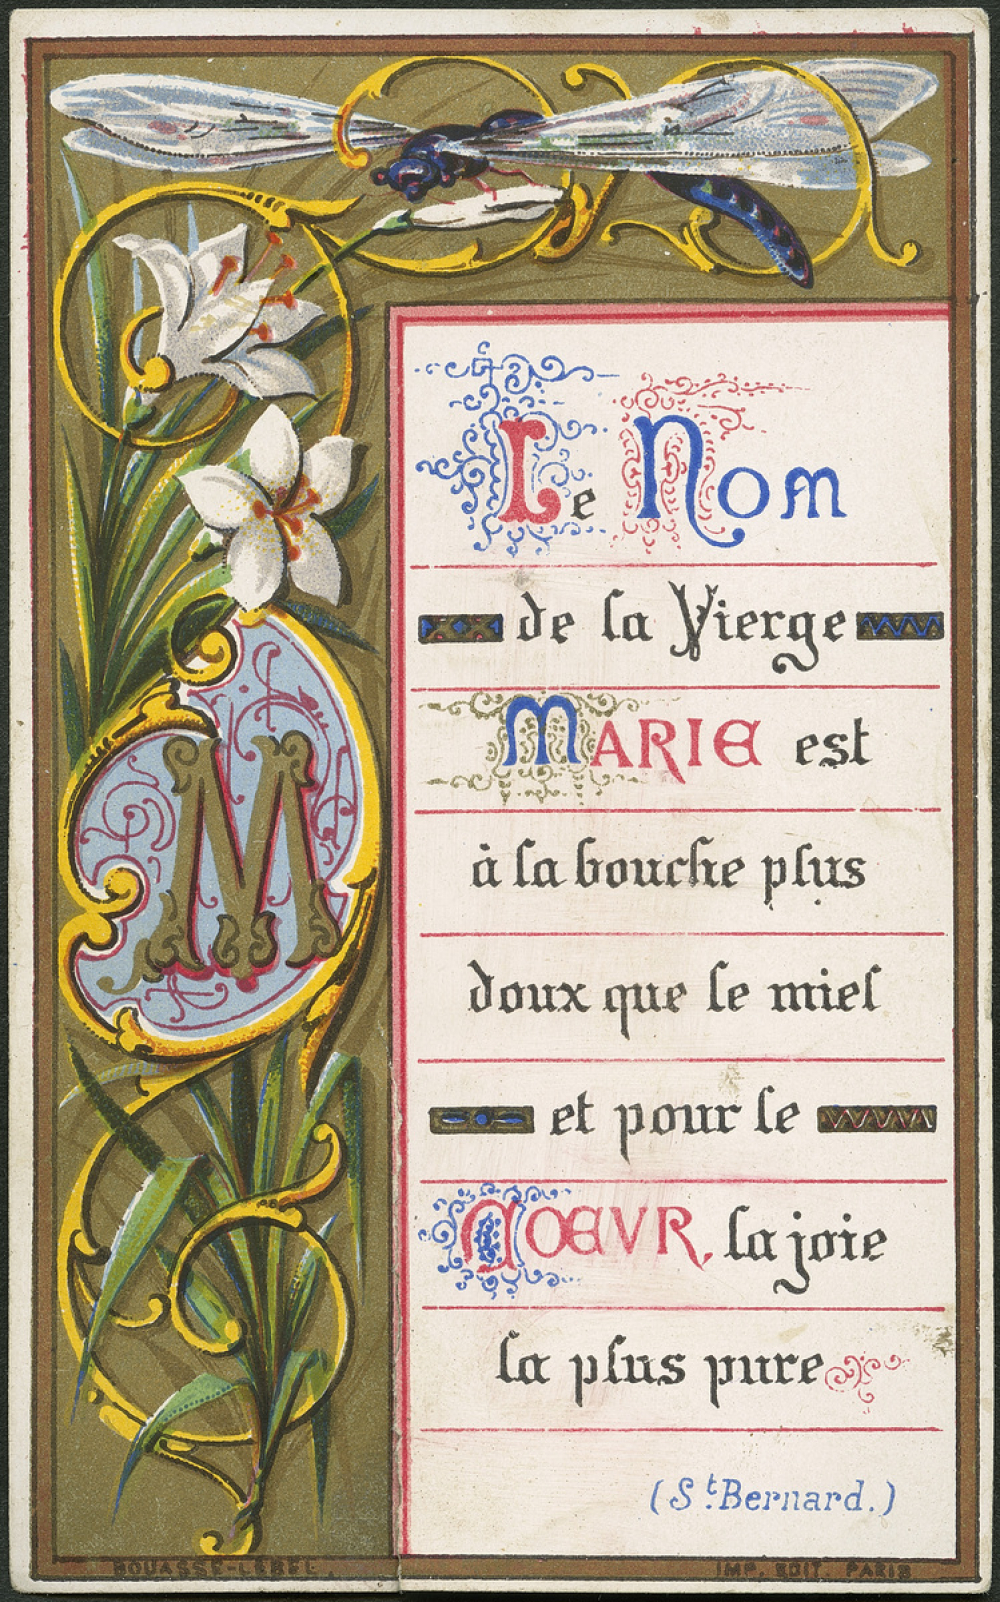 Le Nom
de la Vierge
MARIE est
à la bouche plus
doux que le miel
et pour le
COEVR, la joie
la plus pure
(St. Bernard.)
M
BOUASSE-LEBEL. IMP. EDIT. PARIS